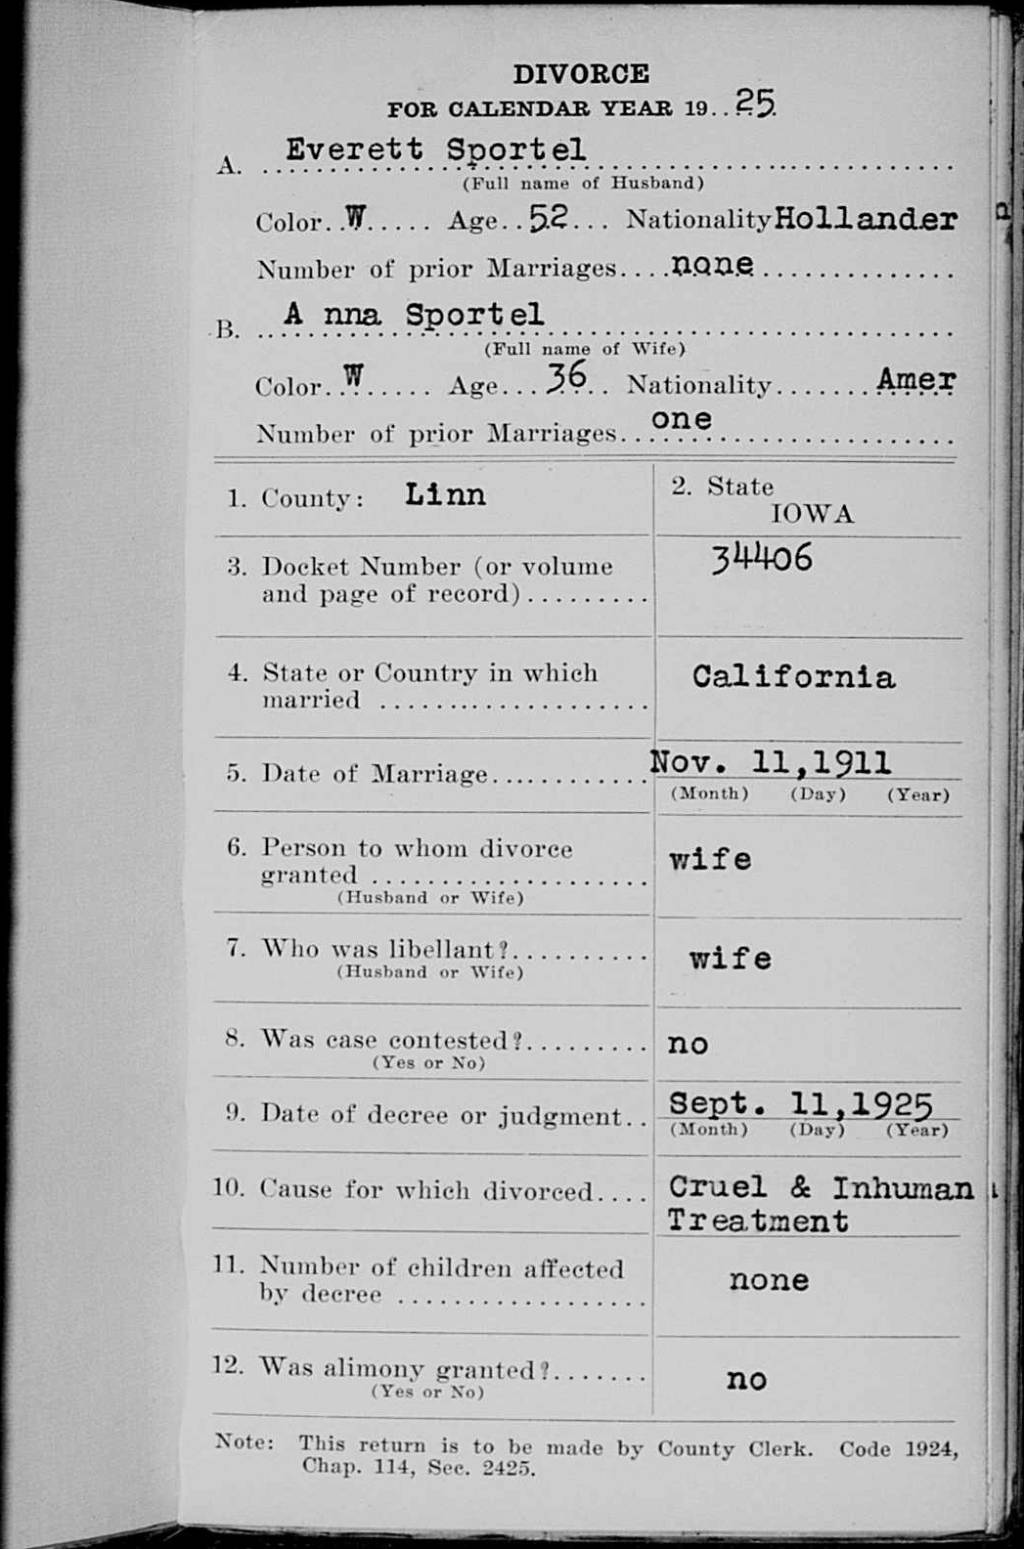 DIVORCE
FOR CALENDAR YEAR 19..25.
A. Everett Sportel
(Full name of Husband)
Color..W..... Age..52... Nationality Hollander
Number of prior Marriages....none...............
B. A nna Sportel
(Full name of Wife)
Color..W...... Age...36.. Nationality........Amer
Number of prior Marriages...one.................
1. County: Linn
2. State
IOWA
3. Docket Number (or volume
and page of record).........
34406
4. State or Country in which
married ....................
California
5. Date of Marriage............Nov. 11,1911
(Month) (Day) (Year)
6. Person to whom divorce
granted ....................
(Husband or Wife)
wife
7. Who was libellant?..........
(Husband or Wife)
wife
8. Was case contested?.........
(Yes or No)
no
9. Date of decree or judgment.. Sept. 11,1925
(Month) (Day) (Year)
10. Cause for which divorced.... Cruel & Inhuman
Treatment
11. Number of children affected
by decree ..................
none
12. Was alimony granted?.......
(Yes or No)
no
Note: This return is to be made by County Clerk. Code 1924,
Chap. 114, Sec. 2425.